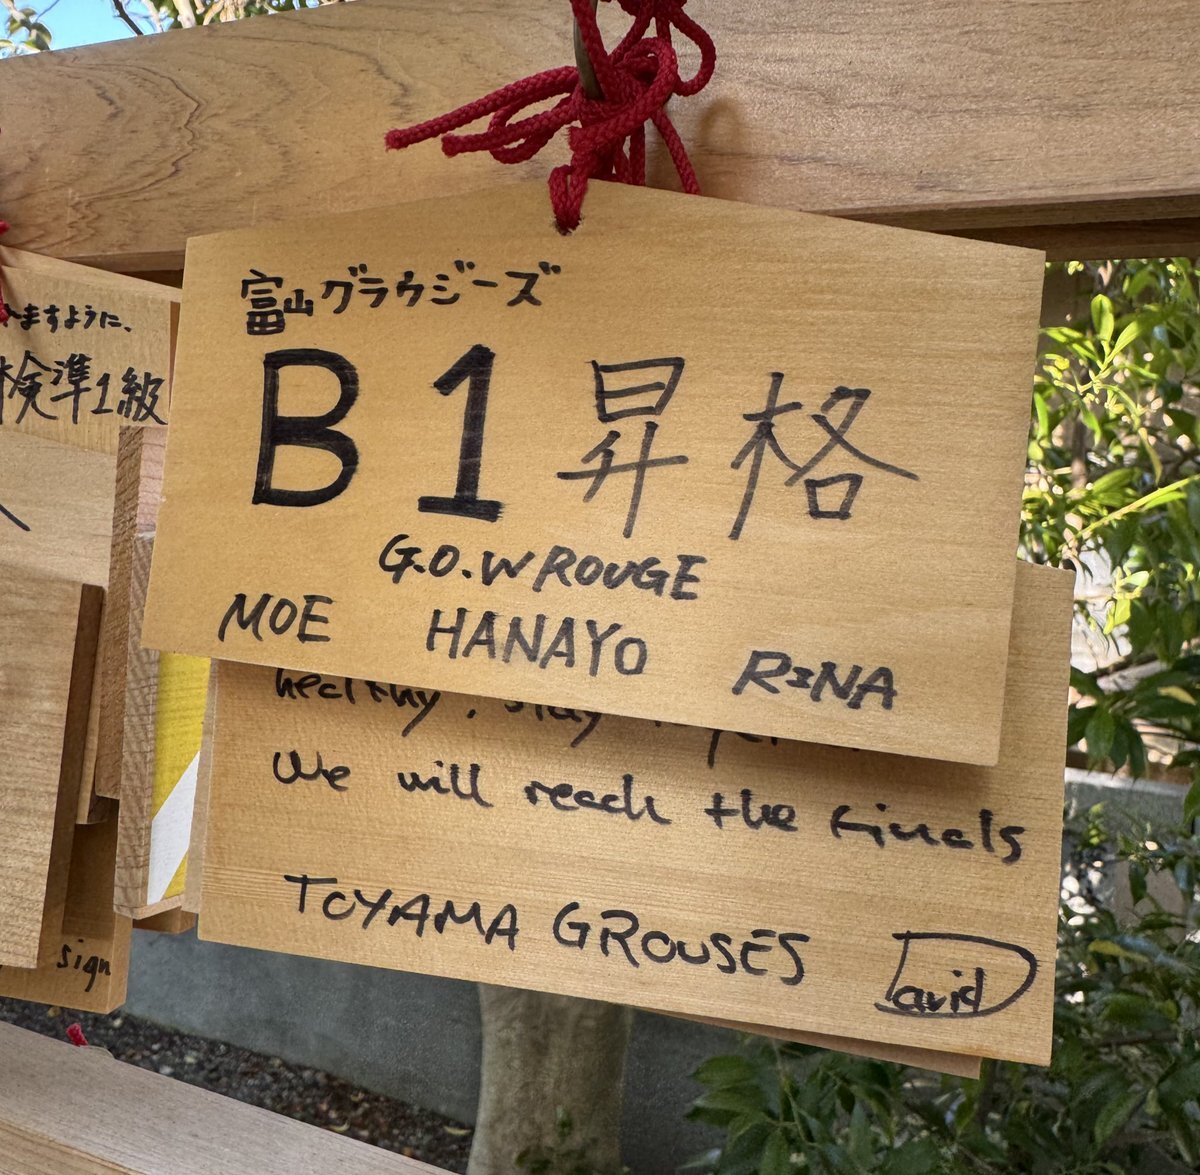 富山グラウジーズ
B1昇格
G.O.W ROUGE
MOE HANAYO RINA
healthy, stay
We will reach the finals
TOYAMA GROUSES David
ますように、
検準1級
sign